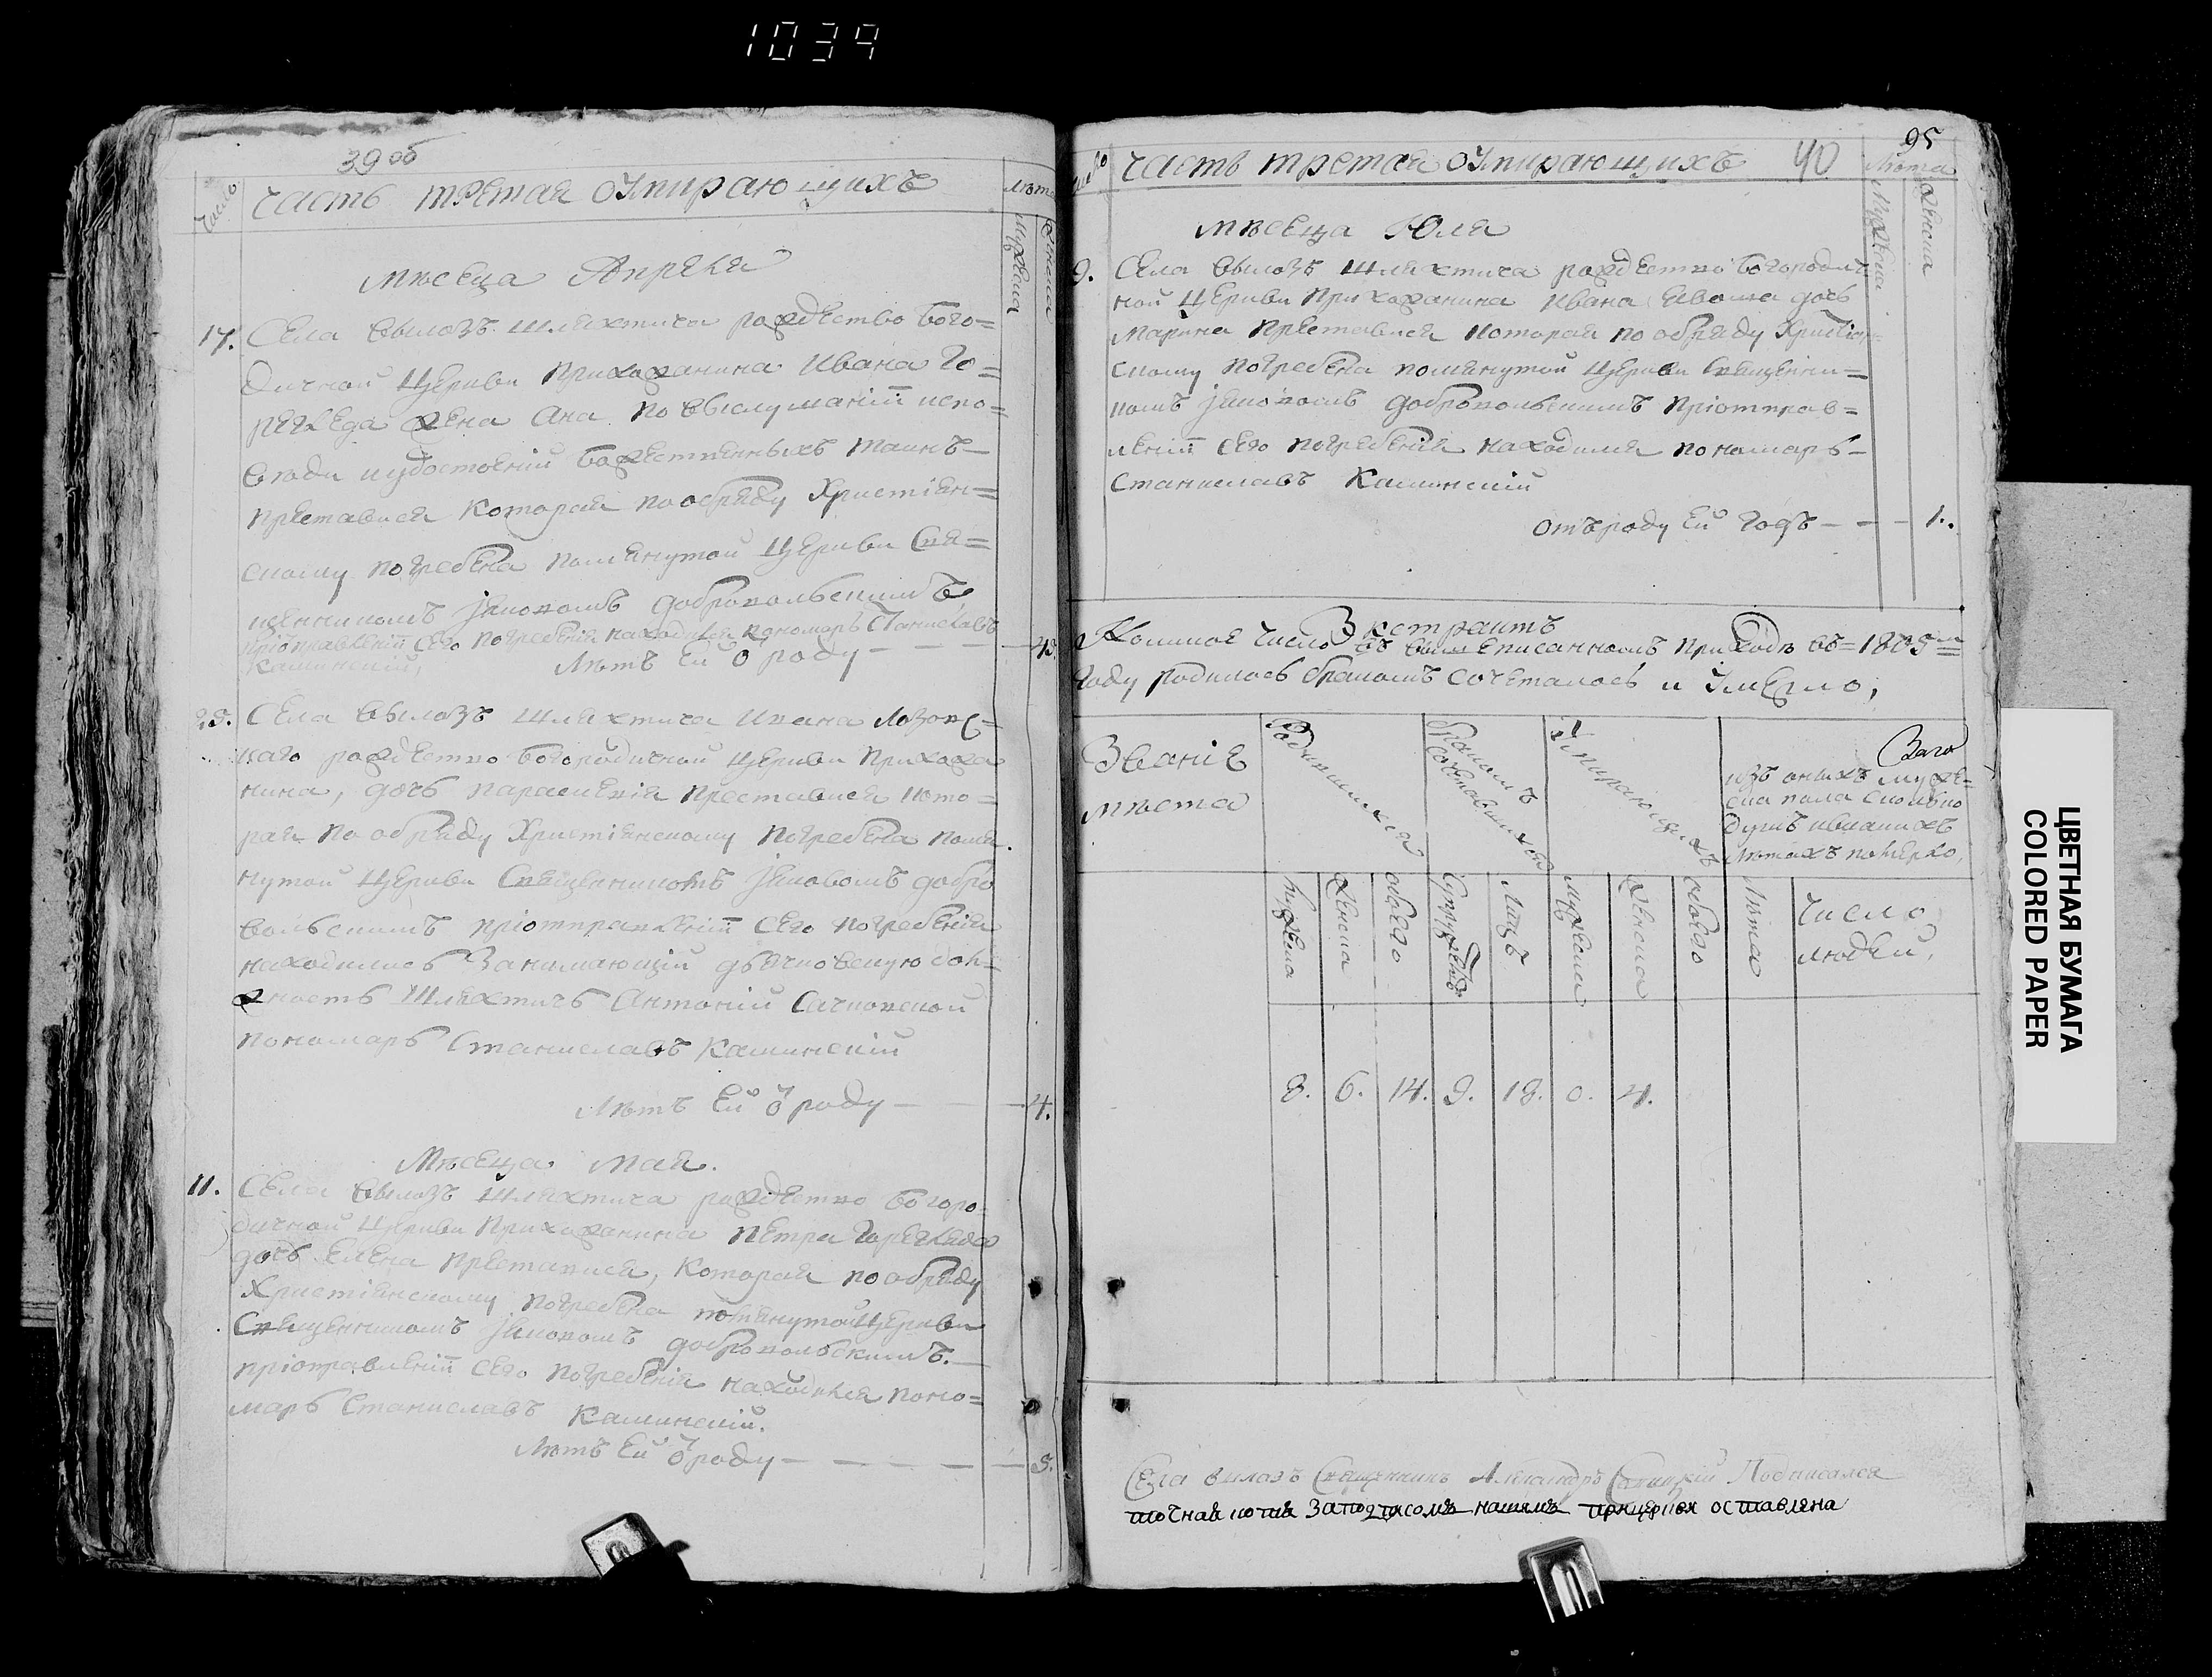 1034
39 об
Число
Часть третая оумирающихъ
Лѣта
Мужеска
Женска
Мѣсеца Апреля
17. Села Вылазъ шляхтича рождество Бого=
дичной церкви прихожанина Ивана Го=
жена Ана по выслуманіи испо=
веди иудостоеніи божественныхъ таинъ
преставися которая по обряду Христіян=
скому погребена помянутой церкви Свя=
щенникомъ Іяковомъ Добровольскимъ
пріотправленіи сего погребенія находился пономарь Станиславъ
Калинскій, Лѣтъ ей ѿ роду — — — 43.
25. Села Вылазъ шляхтича Ивана Лозовс=
каго рождество Богородичной церкви прихожа
нина, дочь Параскевія преставися кото=
рая по обряду Христіянскому погребена помя.
нутой церкви Священникомъ Іяковомъ Добро
вольскимъ пріотправленіи сего погребенія
находились Занимающій дьячковскую дол=
жность шляхтичъ Антоній Сачковской
пономарь Станиславъ Калинскій
Лѣтъ ей ѿ роду — 4.
Мѣсеца Мая.
11. Села Вылазъ шляхтича рождество Богоро
дичной церкви прихожанина Петра
дочь Елена преставися, которая по обряду
Христіянскому погребена помянутой церкви
Священникомъ Іяковомъ Добровольскимъ.
пріотправленіи сего погребенія находился поно=
марь Станиславъ Калинскій.
Лѣтъ ей ѿ роду — — — — 5.
95
Число
Часть третая оумирающихъ
40
Лѣта
Мужеска
Женска
Мѣсеца Юля
9. Села Вылазъ шляхтича рождество Богородич
ной церкви прихожанина Ивана дочь
Марина преставися которая по обряду Христіян
скому погребена помянутой церкви Священни=
комъ Іяковомъ Добровольскимъ пріотправ=
леніи сего погребенія находился пономарь
Станиславъ Калинскій
отъ роду ей годъ — — — 1.
Экстрактъ
Коликое число въ приходѣ въ 1805м
году родилось бракомъ сочеталось и умерло,
Званіе
мѣста
Родившихся
Бракомъ
сочетавшихся
Умирающихъ
изъ онихъ муже=
ска пола сколько
душъ ивкакихъ
лѣтахъ померло,
Мужеска
Женска
обоего
Супружествъ
Лицъ
Мужеска
Женска
обоего
Лѣта
Число
людей,
8. 6. 14. 9. 18. 0. 4.
Села Вилазъ Священникъ Александръ Подписался
точная копія Заподписомъ нашимъ прицеркви оставлена
ЦВЕТНАЯ БУМАГА
COLORED PAPER